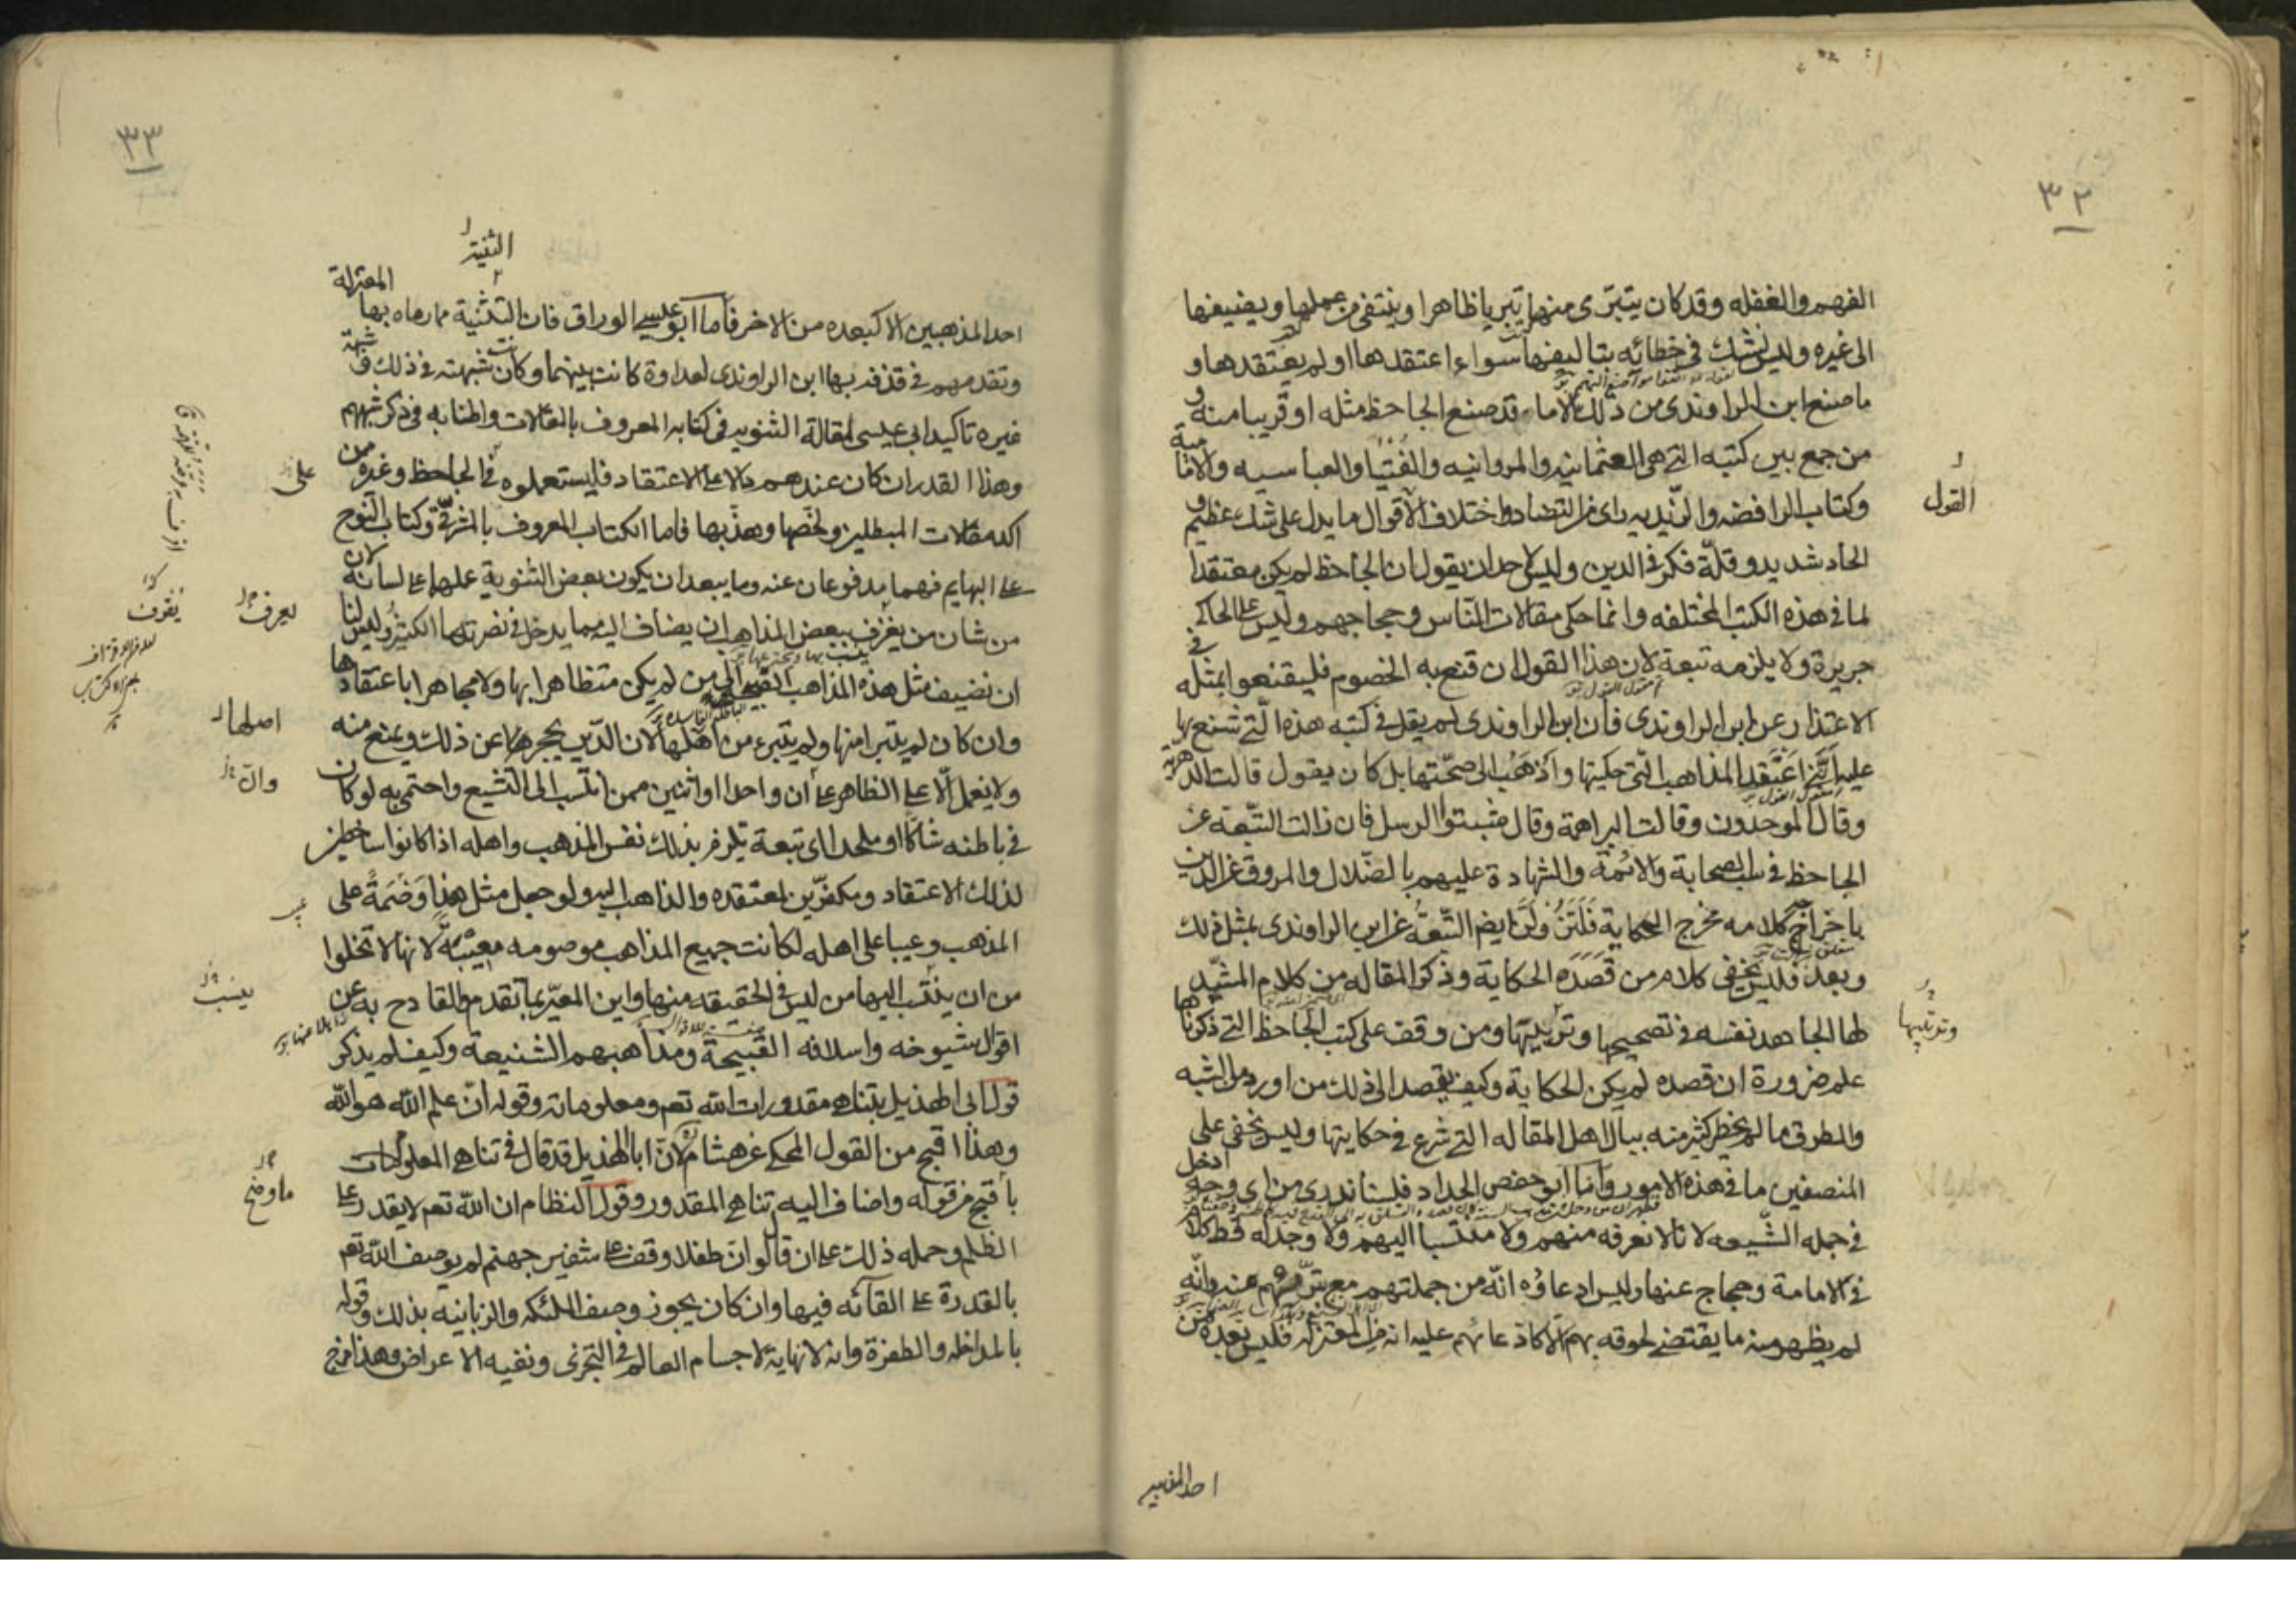 ٣٢
الفهم والغفله وقد كان يتبرى منها تبريا ظاهرا وينتفى من عملها ويضيفها
الى غيره وليس يشك فى خطائه بتاليفها سواء اعتقدها او لم يعتقدها و
ما صنع ابن الراوندى من ذلك الا ما قد صنع الجاحظ مثله او قريبا منه و
من جمع بين كتبه التى هى العثمانيه والمروانيه والفتيا والعباسيه والامامية
وكتاب الرافضه والزيديه راى من التضاد واختلاف الاقوال ما يدل على شك عظيم و
القول
الحاد شديد وقلة فكر فى الدين وليس لاحد ان يقول ان الجاحظ لم يكن معتقدا
لما فى هذه الكتب المختلفه وانما حكى مقالات الناس وحجاجهم وليس على الحاكى
جريرة ولا يلزمه تبعة لان هذا القول ان قنع به الخصوم فليقنعوا بمثله فى
الاعتذار عن ابن الراوندى فان ابن الراوندى لم يقل فى كتبه هذه التى شنع بها
عليه اننى اعتقد المذاهب التى حكيتها واذهب الى صحتها بل كان يقول قالت الدهرية
وقال الموحدون وقالت البراهمة وقال مثبتوا الرسل فان زالت التبعة عن
الجاحظ فى سب الصحابة والائمة والشهادة عليهم بالضلال والمروق عن الدين
باخراج كلامه مخرج الحكاية فلتزولن ايضا التبعة عن ابن الراوندى بمثل ذلك
وبعد فليس يخفى كلام من قصده الحكاية وذكر المقاله من كلام المشيد
لها الجاهد نفسه فى تصحيحها وترتيبها ومن وقف على كتب الجاحظ التى ذكرناها
علم ضرورة ان قصده لم يكن الحكاية وكيف يقصد الى ذلك من اورد من الشبه
والطرق ما لم يخطر كثير منه ببال اهل المقاله التى شرع فى حكايتها وليس يخفى على
المنصفين ما فى هذه الامور واما ابو حفص الحداد فلسنا ندرى من اى وجه ادخل
فى جمله الشيعه لانا لا نعرفه منهم ولا منتسبا اليهم ولا وجد له قط كلام
فى الامامة وحجاج عنها وليس ادعاؤه انه من جملتهم مع تبريهم منه وانه
لم يظهر منه ما يقتضى لحوقه بهم الا كادعائهم عليه انه من المعتزله فليس بعده من
احد المذهبين
٣٣
الثنيته
احد المذهبين الا كبعده من الاخر فاما ابو عيسى الوراق فان التثنية مما رماه بها المعتزلة
وتقدمهم فى قذفه بها ابن الراوندى لعداوة كانت بينهما وكانت شبهته فى ذلك و شبهة
غيره تاكيد ابى عيسى لمقالة الثنويه فى كتابه المعروف بالمقالات واطنابه فى ذكر شبههم
وهذا القدر ان كان عندهم دالا على الاعتقاد فليستعملوه فى الجاحظ وغيره من
على
اكد مقالات المبطلين ولخصها وهذبها فاما الكتاب المعروف بالمشرقى وكتاب النوح
على البهايم فهما مدفوعان عنه وما يبعد ان يكون بعض الثنوية علهما على لسانه لان
من شان من يعرف ببعض المذاهب ان يضاف اليه مما يدخل فى نصرتها الكثير وليس لنا
يعرف
ان نضيف مثل هذه المذاهب القبيحة الى من لم يكن متظاهرا بها ولا مجاهرا باعتقادها
وان كان لم يتبرا منها ولم يتبرء من اهلها لان الدين يحجرها عن ذلك ويمنع منه
اصلها
ولا يعمل الا على الظاهر على ان واحدا او اثنين ممن انتسب الى التشيع واحتمى به لو كان
وان
فى باطنه شاكا او ملحدا اى تبعة تلزم بذلك نفس المذهب واهله اذا كانوا ساخطين
لذلك الاعتقاد ومكفرين لمعتقده والذاهب اليه ولو جعل مثل هذا وصمة على
المذهب وعيبا على اهله لكانت جميع المذاهب موصومه معيبة لانها لا تخلوا
من ان ينتسب اليها من ليس فى الحقيقه منها واين المعير بما تقدم والقادح به عن
ينسب
اقوال شيوخه واسلافه القبيحة ومذاهبهم الشنيعة وكيف لم يذكر
قول ابى الهذيل بتناهى مقدورات الله تعم ومعلوماته وقوله ان علم الله هو الله
وهذا اقبح من القول المحكى عن هشام لان ابا الهذيل قد قال فى تناهى المعلومات
باقبح من قوله واضاف اليه تناهى المقدور وقول النظام ان الله تعم لا يقدر على
الظلم وحمله ذلك على ان قال لو ان طفلا وقف على شفير جهنم لم يوصف الله تعم
بالقدرة على القائه فيها وان كان يجوز وصف الملئكه والزبانيه بذلك وقوله
بالمداخله والطفرة وانه لا نهاية لاجسام العالم فى التجزى ونفيه الاعراض وهذا مزج